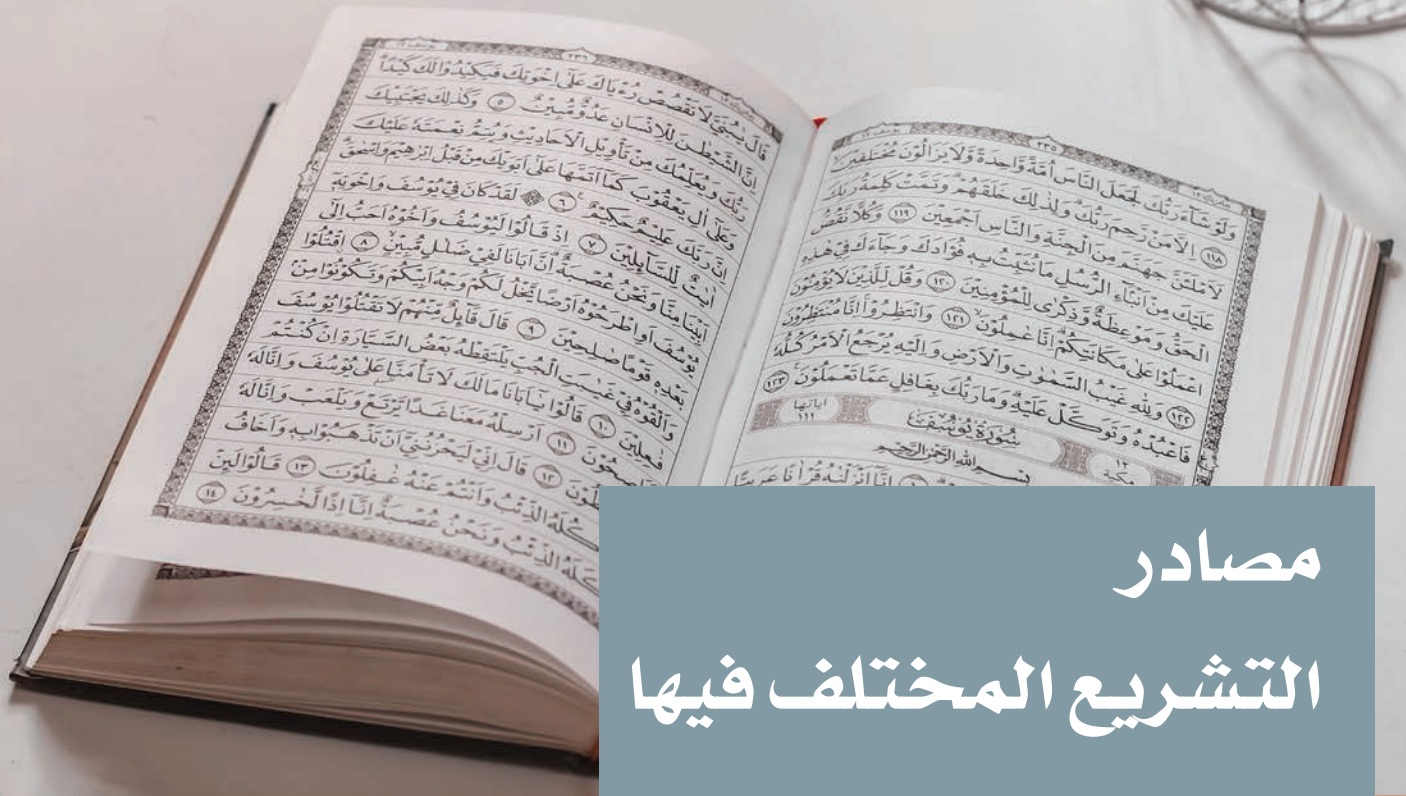 ٢٣٥
وَلَوْ شَآءَ رَبُّكَ لَجَعَلَ النَّاسَ اُمَّةً وَّاحِدَةً وَّلَا يَزَالُوْنَ مُخْتَلِفِيْنَ
١١٨ اِلَّا مَنْ رَّحِمَ رَبُّكَ وَلِذٰلِكَ خَلَقَهُمْ وَتَمَّتْ كَلِمَةُ رَبِّكَ
لَاَمْلَـَٔنَّ جَهَنَّمَ مِنَ الْجِنَّةِ وَالنَّاسِ اَجْمَعِيْنَ ١١٩ وَكُلًّا نَّقُصُّ
عَلَيْكَ مِنْ اَنْۢبَآءِ الرُّسُلِ مَا نُثَبِّتُ بِهٖ فُؤَادَكَ وَجَآءَكَ فِيْ هٰذِهِ
الْحَقُّ وَمَوْعِظَةٌ وَّذِكْرٰى لِلْمُؤْمِنِيْنَ ١٢٠ وَقُلْ لِّلَّذِيْنَ لَا يُؤْمِنُوْنَ
اعْمَلُوْا عَلٰى مَكَانَتِكُمْ اِنَّا عٰمِلُوْنَ ١٢١ وَانْتَظِرُوْا اِنَّا مُنْتَظِرُوْنَ
١٢٢ وَلِلّٰهِ غَيْبُ السَّمٰوٰتِ وَالْاَرْضِ وَاِلَيْهِ يُرْجَعُ الْاَمْرُ كُلُّهٗ
فَاعْبُدْهُ وَتَوَكَّلْ عَلَيْهِ وَمَا رَبُّكَ بِغَافِلٍ عَمَّا تَعْمَلُوْنَ ١٢٣
١٢ مكية سُوْرَةُ يُوْسُفَ اياتها ١١١
بِسْمِ اللّٰهِ الرَّحْمٰنِ الرَّحِيْمِ
اِنَّآ اَنْزَلْنٰهُ قُرْاٰنًا عَرَبِيًّا
٢٣٦
قَالَ يٰبُنَيَّ لَا تَقْصُصْ رُءْيَاكَ عَلٰٓى اِخْوَتِكَ فَيَكِيْدُوْا لَكَ كَيْدًا
اِنَّ الشَّيْطٰنَ لِلْاِنْسَانِ عَدُوٌّ مُّبِيْنٌ ٥ وَكَذٰلِكَ يَجْتَبِيْكَ
رَبُّكَ وَيُعَلِّمُكَ مِنْ تَأْوِيْلِ الْاَحَادِيْثِ وَيُتِمُّ نِعْمَتَهٗ عَلَيْكَ
وَعَلٰٓى اٰلِ يَعْقُوْبَ كَمَآ اَتَمَّهَا عَلٰٓى اَبَوَيْكَ مِنْ قَبْلُ اِبْرٰهِيْمَ وَاِسْحٰقَ
اِنَّ رَبَّكَ عَلِيْمٌ حَكِيْمٌ ٦ لَقَدْ كَانَ فِيْ يُوْسُفَ وَاِخْوَتِهٖٓ
اٰيٰتٌ لِّلسَّآئِلِيْنَ ٧ اِذْ قَالُوْا لَيُوْسُفُ وَاَخُوْهُ اَحَبُّ اِلٰٓى
اَبِيْنَا مِنَّا وَنَحْنُ عُصْبَةٌ اِنَّ اَبَانَا لَفِيْ ضَلٰلٍ مُّبِيْنٍ ٨ اقْتُلُوْا
يُوْسُفَ اَوِ اطْرَحُوْهُ اَرْضًا يَّخْلُ لَكُمْ وَجْهُ اَبِيْكُمْ وَتَكُوْنُوْا مِنْۢ
بَعْدِهٖ قَوْمًا صٰلِحِيْنَ ٩ قَالَ قَآئِلٌ مِّنْهُمْ لَا تَقْتُلُوْا يُوْسُفَ
وَاَلْقُوْهُ فِيْ غَيٰبَتِ الْجُبِّ يَلْتَقِطْهُ بَعْضُ السَّيَّارَةِ اِنْ كُنْتُمْ
فٰعِلِيْنَ ١٠ قَالُوْا يٰٓاَبَانَا مَالَكَ لَا تَأْمَنَّا عَلٰى يُوْسُفَ وَاِنَّا لَهٗ
لَنٰصِحُوْنَ ١١ اَرْسِلْهُ مَعَنَا غَدًا يَّرْتَعْ وَيَلْعَبْ وَاِنَّا لَهٗ
١٢ قَالَ اِنِّيْ لَيَحْزُنُنِيْٓ اَنْ تَذْهَبُوْا بِهٖ وَاَخَافُ
يَّأْكُلَهُ الذِّئْبُ وَاَنْتُمْ عَنْهُ غٰفِلُوْنَ ١٣ قَالُوْا لَئِنْ
اَكَلَهُ الذِّئْبُ وَنَحْنُ عُصْبَةٌ اِنَّآ اِذًا لَّخٰسِرُوْنَ ١٤
مصادر
التشريع المختلف فيها